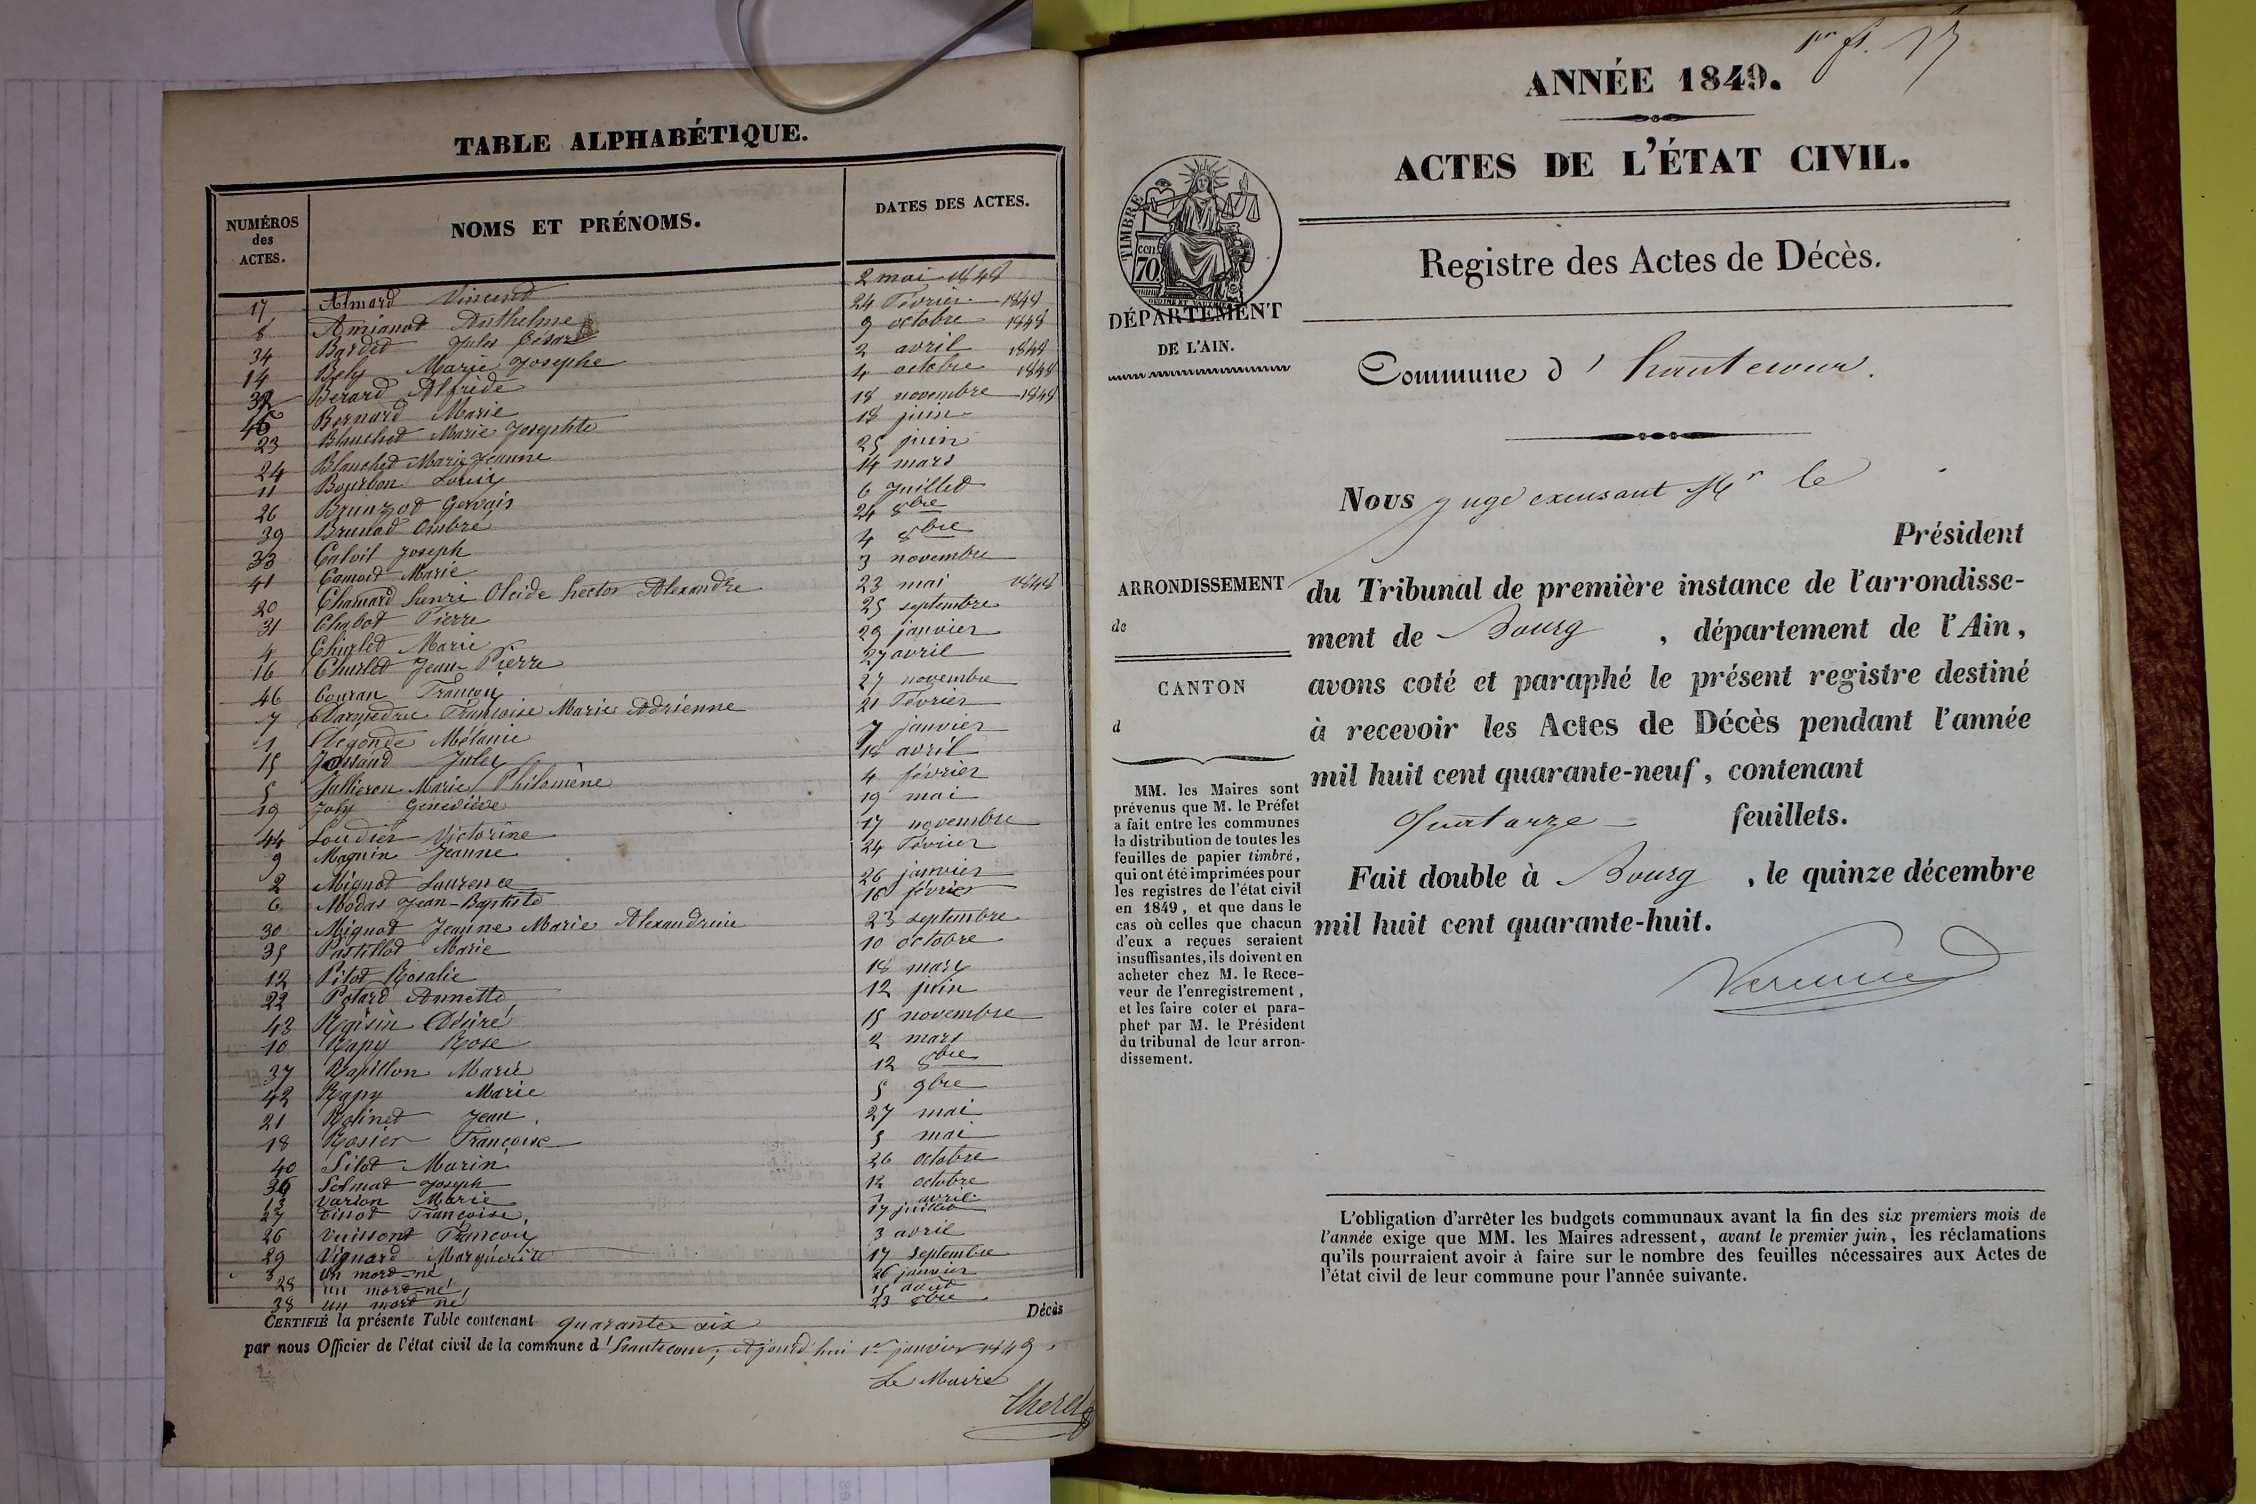 TABLE ALPHABÉTIQUE.
NUMÉROS des ACTES.
NOMS ET PRÉNOMS.
DATES DES ACTES.
17 Almard Vincent 2 mai 1848
8 Amianot Anthelme 24 Février 1848
34 Bardet Jules César 9 octobre 1848
14 Bely Marie Josephe 2 avril 1848
32 Berard Alfrède 4 octobre 1848
45 Bernard Marie 18 novembre 1848
23 Blanchet Marie Josephte 18 juin
24 Blanchet Marie Jeanne 25 juin
11 Bourbon Louis 14 mars
26 Brunzot Gervais 6 Juillet
39 Brunot Ombré 24 8bre
33 Calvit Joseph 4 8bre
41 Camoit Marie 3 novembre
20 Chamard henri Alcide hector Alexandre 23 mai 1848
31 Chabot Pierre 25 septembre
4 Charlet Marie 29 janvier
16 Charlet Jean Pierre 27 avril
46 Couran François 27 novembre
7 Françoise Marie Adrienne 21 Février
1 Clégonde Mélanie 7 janvier
15 Jossand Jules 18 avril
5 Jullieron Marie Philomène 4 février
19 Joly Geneviève 19 mai
44 Loudier Victorine 17 novembre
9 Magnin Jeanne 24 Février
2 Mignot Laurence 26 janvier
6 Modas Jean-Baptiste 16 février
30 Mignot Jeanne Marie Alexandrine 23 septembre
35 Pastillot Marie 10 octobre
12 Pitot Rosalie 18 mars
22 Potard Annette 12 juin
43 Raisin Désiré 15 novembre
10 Rapy Rose 2 mars
37 Rapillon Marie 12 8bre
42 Rapy Marie 5 9bre
21 Rolinet Jean 27 mai
18 Rosier Françoise 5 mai
40 Silot Marin 26 octobre
36 Solmat Joseph 12 octobre
13 Varion Marie 1 avril
27 Tissot Françoise 17 juillet
26 Vuissont François 3 avril
29 Vignard Marguerite 17 septembre
3 un mort-né 26 janvier
28 un mort-né 15 août
38 un mort né 23 8bre
CERTIFIÉ la présente Table contenant quarante six Décès
par nous Officier de l'état civil de la commune d'hautecour, Ajourd'hui 1er janvier 1849
Le Maire
Cherel
1er ft. 15
ANNÉE 1849.
ACTES DE L'ÉTAT CIVIL.
Registre des Actes de Décès.
TIMBRE
70
DÉPARTEMENT
DE L'AIN.
Commune d'hautecour.
Nous Juge excusant Mr le
Président
ARRONDISSEMENT
de
CANTON
d
du Tribunal de première instance de l'arrondisse-
ment de Bourg, département de l'Ain,
avons coté et paraphé le présent registre destiné
à recevoir les Actes de Décès pendant l'année
mil huit cent quarante-neuf, contenant
quatorze feuillets.
Fait double à Bourg, le quinze décembre
mil huit cent quarante-huit.
MM. les Maires sont
prévenus que M. le Préfet
a fait entre les communes
la distribution de toutes les
feuilles de papier timbré,
qui ont été imprimées pour
les registres de l'état civil
en 1849, et que dans le
cas où celles que chacun
d'eux a reçues seraient
insuffisantes, ils doivent en
acheter chez M. le Rece-
veur de l'enregistrement,
et les faire coter et para-
pher par M. le Président
du tribunal de leur arron-
dissement.
L'obligation d'arrêter les budgets communaux avant la fin des six premiers mois de
l'année exige que MM. les Maires adressent, avant le premier juin, les réclamations
qu'ils pourraient avoir à faire sur le nombre des feuilles nécessaires aux Actes de
l'état civil de leur commune pour l'année suivante.